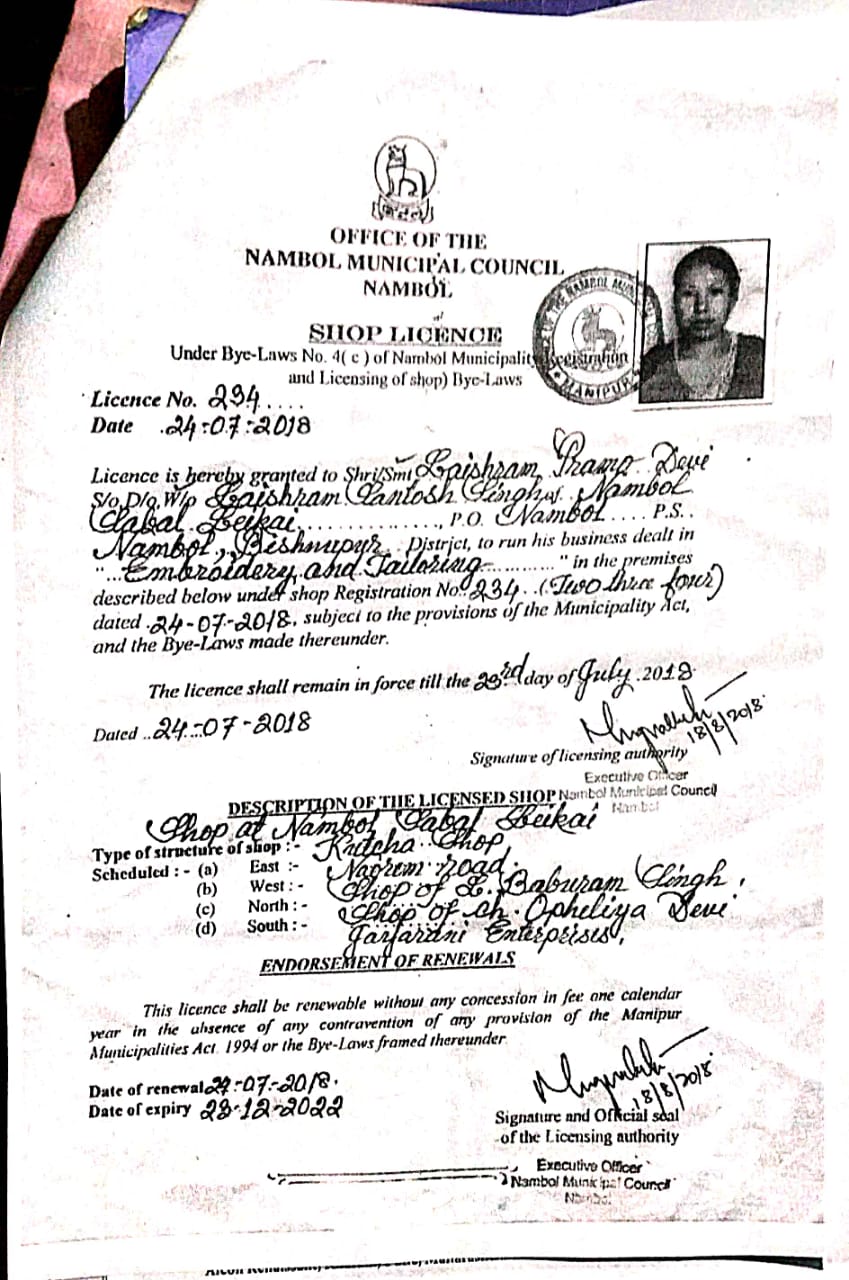 OFFICE OF THE
NAMBOL MUNICIPAL COUNCIL
NAMBOL
SHOP LICENCE
Under Bye-Laws No. 4( c ) of Nambol Municipality Registration
and Licensing of shop) Bye-Laws
MANIPUR
Licence No. 234....
Date .24-07-2018
Licence is hereby granted to Shri/Smt Laishram Pramo Devi
S/o, D/o, W/o Laishram Santosh Singh of Nambol
Sabal Leikai..............., P.O. Nambol.... P.S..
Nambol, Bishnupur District, to run his business dealt in
"...Embroidery and Tailoring............" in the premises
described below under shop Registration No. 234..(Two three four)
dated .24-07-2018, subject to the provisions of the Municipality Act,
and the Bye-Laws made thereunder.
The licence shall remain in force till the 23rd day of July .2018.
Dated ..24-07-2018
18/8/2018
Signature of licensing authority
Executive Officer
Nambol Municipal Council
Nambol
DESCRIPTION OF THE LICENSED SHOP
Shop at Nambol Sabal Leikai
Type of structure of shop :- Kutcha Shop
Scheduled : - (a) East :- Naorem road.
(b) West : - Shop of L. Baburam Singh,
(c) North : - Shop of Ch. Opheliya Devi
(d) South : - Enterprises,
ENDORSEMENT OF RENEWALS
This licence shall be renewable without any concession in fee one calendar
year in the absence of any contravention of any provision of the Manipur
Municipalities Act. 1994 or the Bye-Laws framed thereunder
Date of renewal 24-07-2018.
Date of expiry 23-12-2022
18/8/2018
Signature and Official seal
of the Licensing authority
Executive Officer
Nambol Municipal Council
Nambol